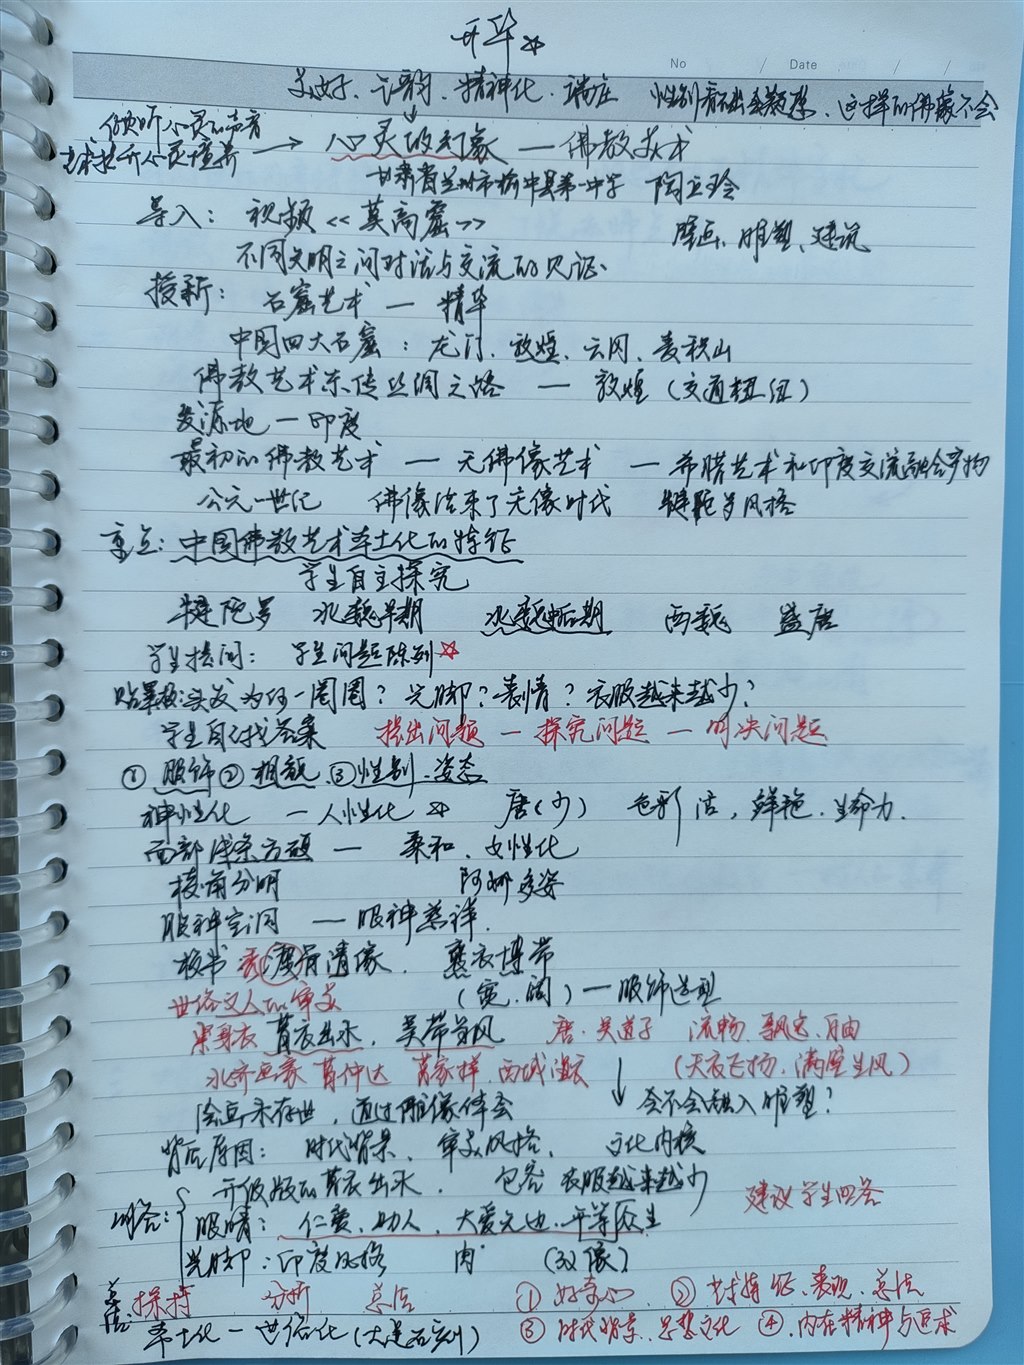 升华☆
No / Date / /
美好、气韵、精神化、端庄 性别看不出来疑惑、这样的佛像不会
倾听心灵的声音
心灵的幻象 — 佛教美术
甘肃省兰州市榆中县第一中学 陶立玲
导入： 视频《莫高窟》 壁画、雕塑、建筑
不同文明之间对话与交流的见证、
授新： 石窟艺术 — 精华
中国四大石窟：龙门、敦煌、云冈、麦积山
佛教艺术东传丝绸之路 — 敦煌（交通枢纽）
发源地 — 印度
最初的佛教艺术 — 无佛像艺术 — 希腊艺术和印度交流融合产物
公元一世纪 佛像结束了无像时代 犍陀罗风格
重点：中国佛教艺术本土化的特征
学生自主探究
犍陀罗 北魏早期 北魏中后期 西魏 盛唐
学生提问： 学生问题陈列☆
贴黑板：头发为何一圈圈？光脚？表情？衣服越来越少？
学生自己找答案 提出问题 — 探究问题 — 解决问题
①服饰②相貌、③性别、姿态
神性化 — 人性化 ☆ 唐（少） 色彩 活，鲜艳、生命力、
面部线条方硬 — 柔和、女性化
棱角分明 阿娜多姿
眼神空洞 — 眼神慈祥、
板书 秀（瘦）骨清像、 褒衣博带
世俗文人的审美 （宽、阔）— 服饰造型
曹衣出水，吴带当风 唐、吴道子 流畅、飘逸、自由
北齐画家 曹仲达 曹家样、西域 （天衣飞扬、满壁生风）
绘画未存世，通过雕像体会 ↓ 会不会融入雕塑？
背后原因： 时代背景、审美风格、 文化内核
升级版的曹衣出水， 包容 衣服越来越少
建议学生回答
眼睛： 仁爱、助人、大爱无边、平等众生
光脚：印度风格 肉 （双像）
总结 探特 分析 总结 ①好奇心、②找特征、表现、总结
本土化 — 世俗化（大足石刻） ③时代背景、思想文化 ④、内在精神与追求